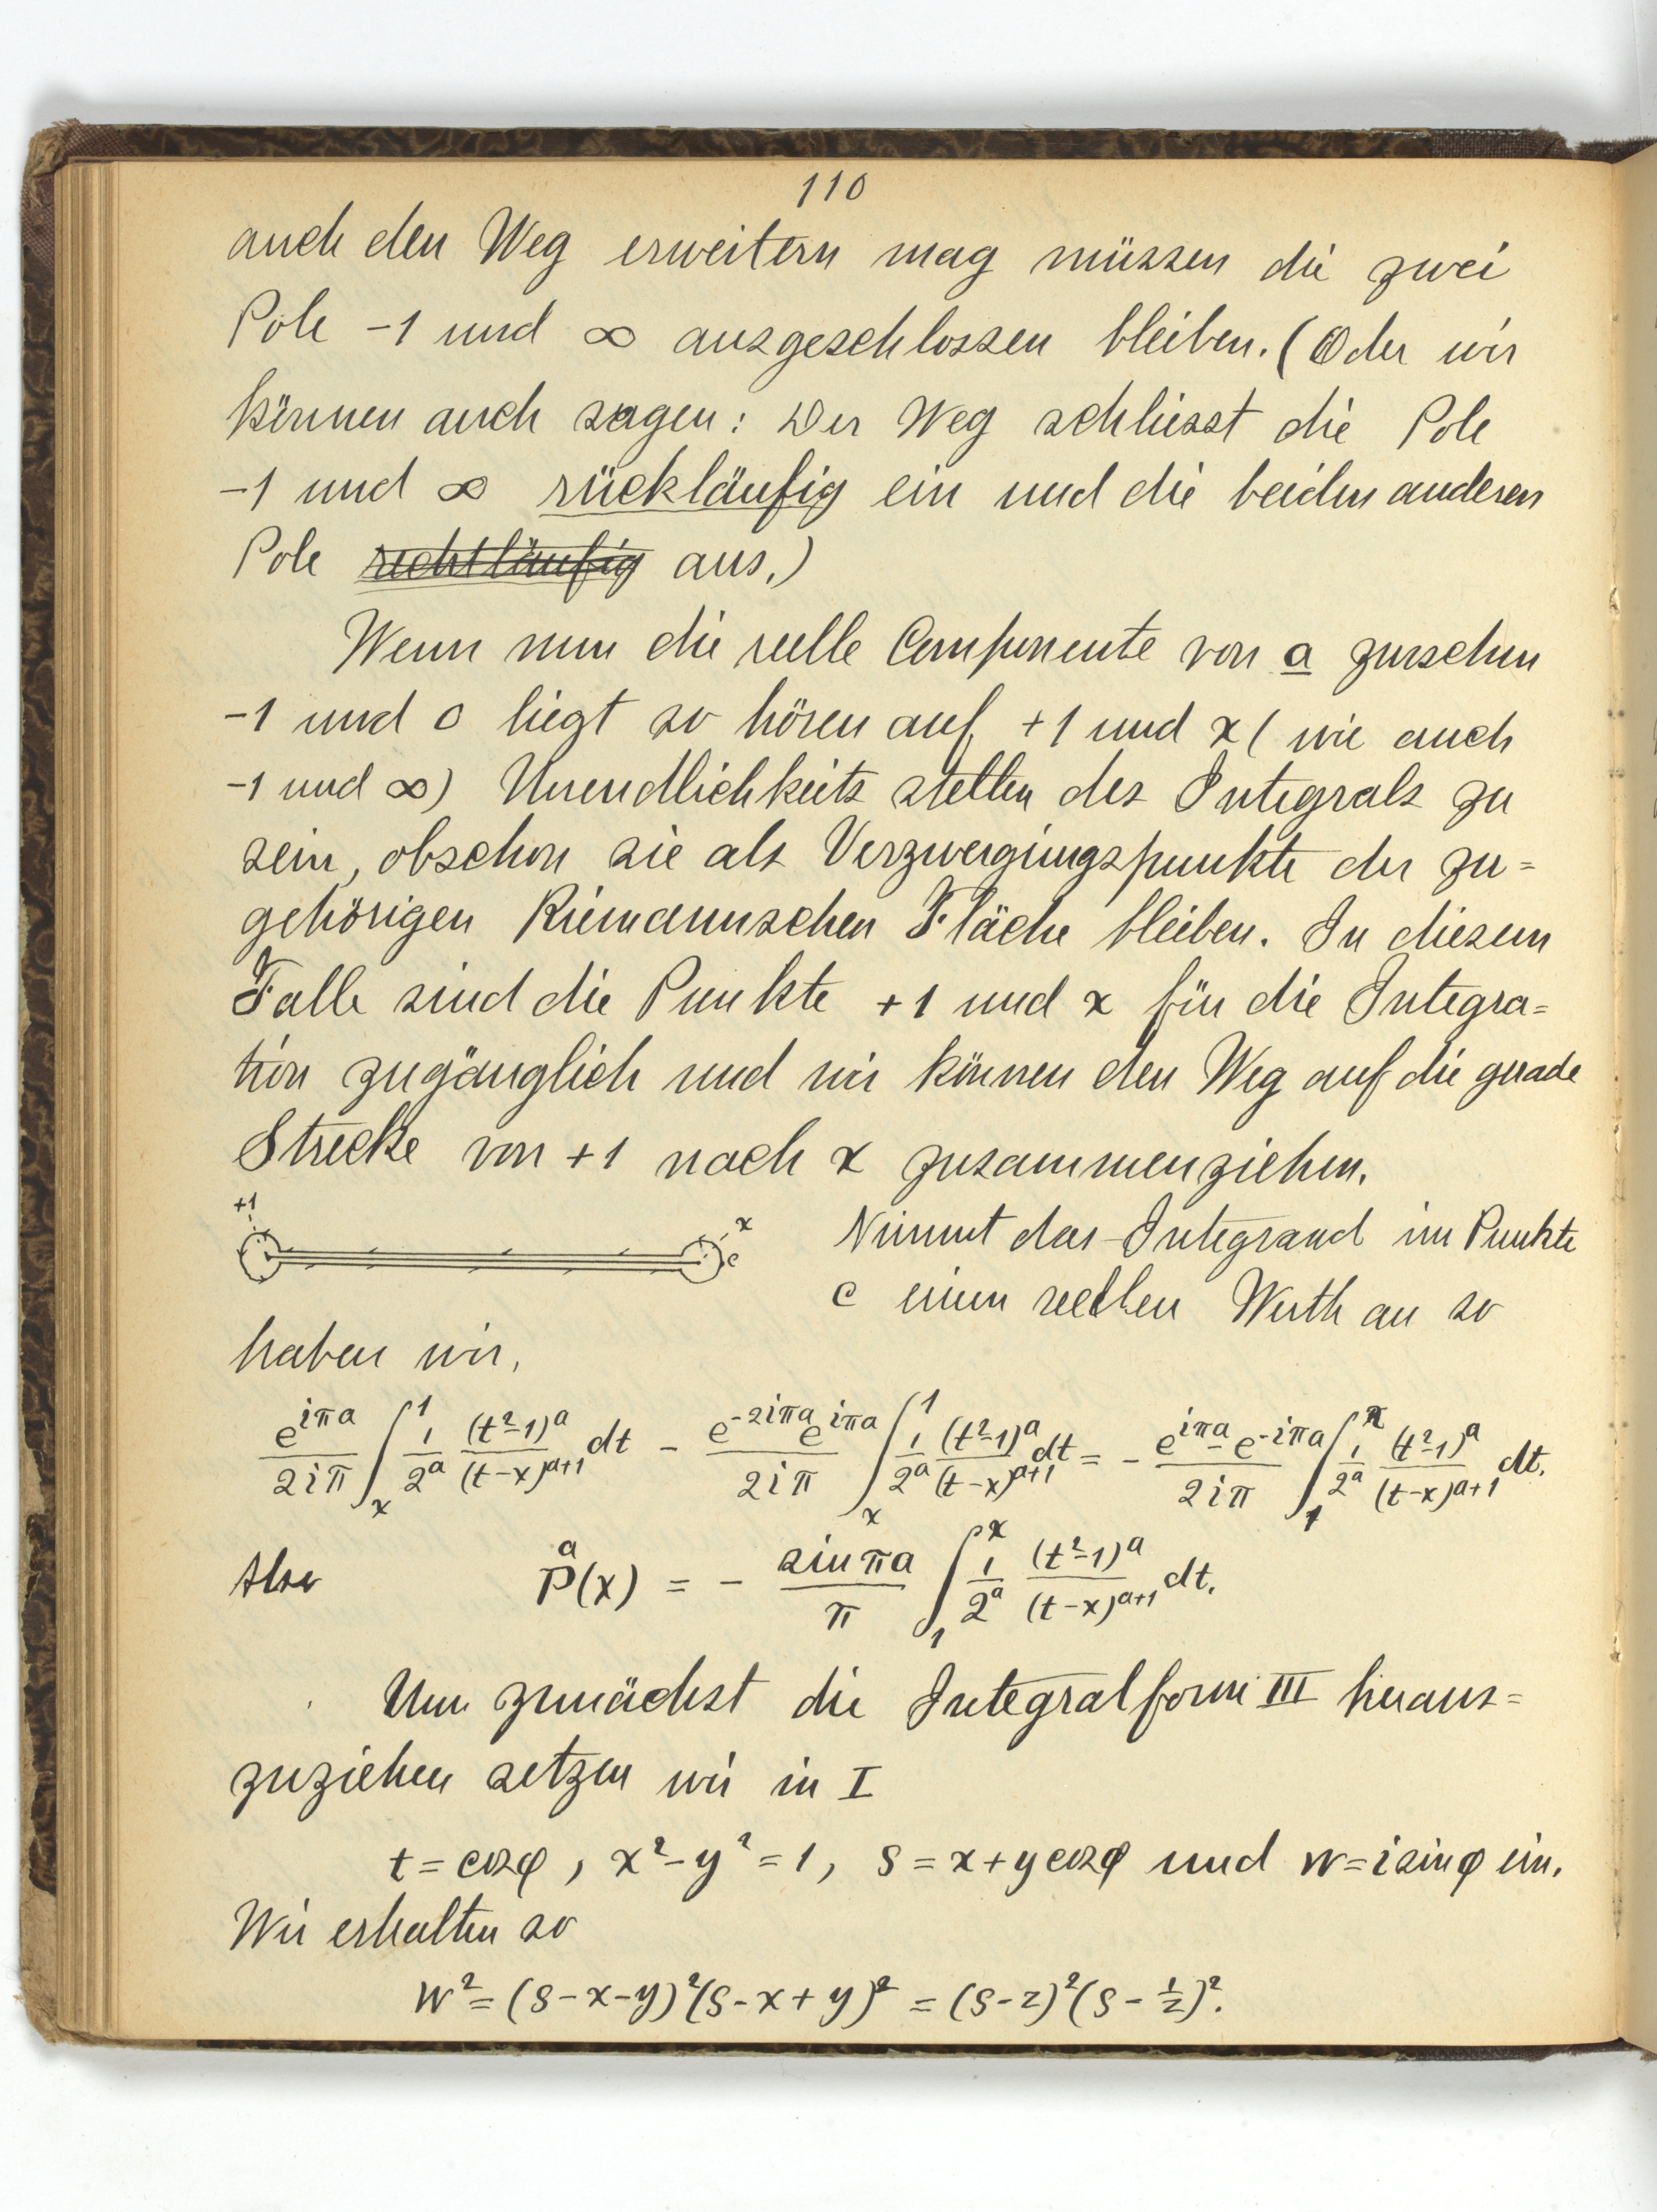 110
auch den Weg erweitern mag müssen die zwei
Pole -1 und ∞ ausgeschlossen bleiben. (Oder wir
können auch sagen: Der Weg schliesst die Pole
-1 und ∞ rückläufig ein und die beiden anderen
Pole rechtläufig aus.)
Wenn nun die reelle Componente von a zwischen
-1 und 0 liegt so hören auf +1 und x ( wie auch
-1 und ∞) Unendlichkeits stellen des Integrals zu
sein, obschon sie als Verzweigungspunkte der zu=
gehörigen Riemannschen Fläche bleiben. In diesem
Falle sind die Punkte +1 und x für die Integra=
tion zugänglich und wir können den Weg auf die gerade
Strecke von +1 nach x zusammenziehen.
+1 x c
Nimmt das Integrand im Punkte
c einen reellen Werth an so
haben wir,
e^{iπa}/2iπ ∫_x^1 1/2^a (t²-1)^a/(t-x)^{a+1} dt - e^{-2iπa}e^{iπa}/2iπ ∫_x^1 1/2^a (t²-1)^a/(t-x)^{a+1} dt = - e^{iπa}-e^{-iπa}/2iπ ∫_1^x 1/2^a (t²-1)^a/(t-x)^{a+1} dt.
Also P^a(x) = - sin πa/π ∫_1^x 1/2^a (t²-1)^a/(t-x)^{a+1} dt.
Um zunächst die Integralform III heraus=
zuziehen setzen wir in I
t = cosφ, x²-y²=1, s = x+y cosφ und w=i sinφ ein.
Wir erhalten so
w² = (s-x-y)²(s-x+y)² = (s-z)²(s-1/z)².